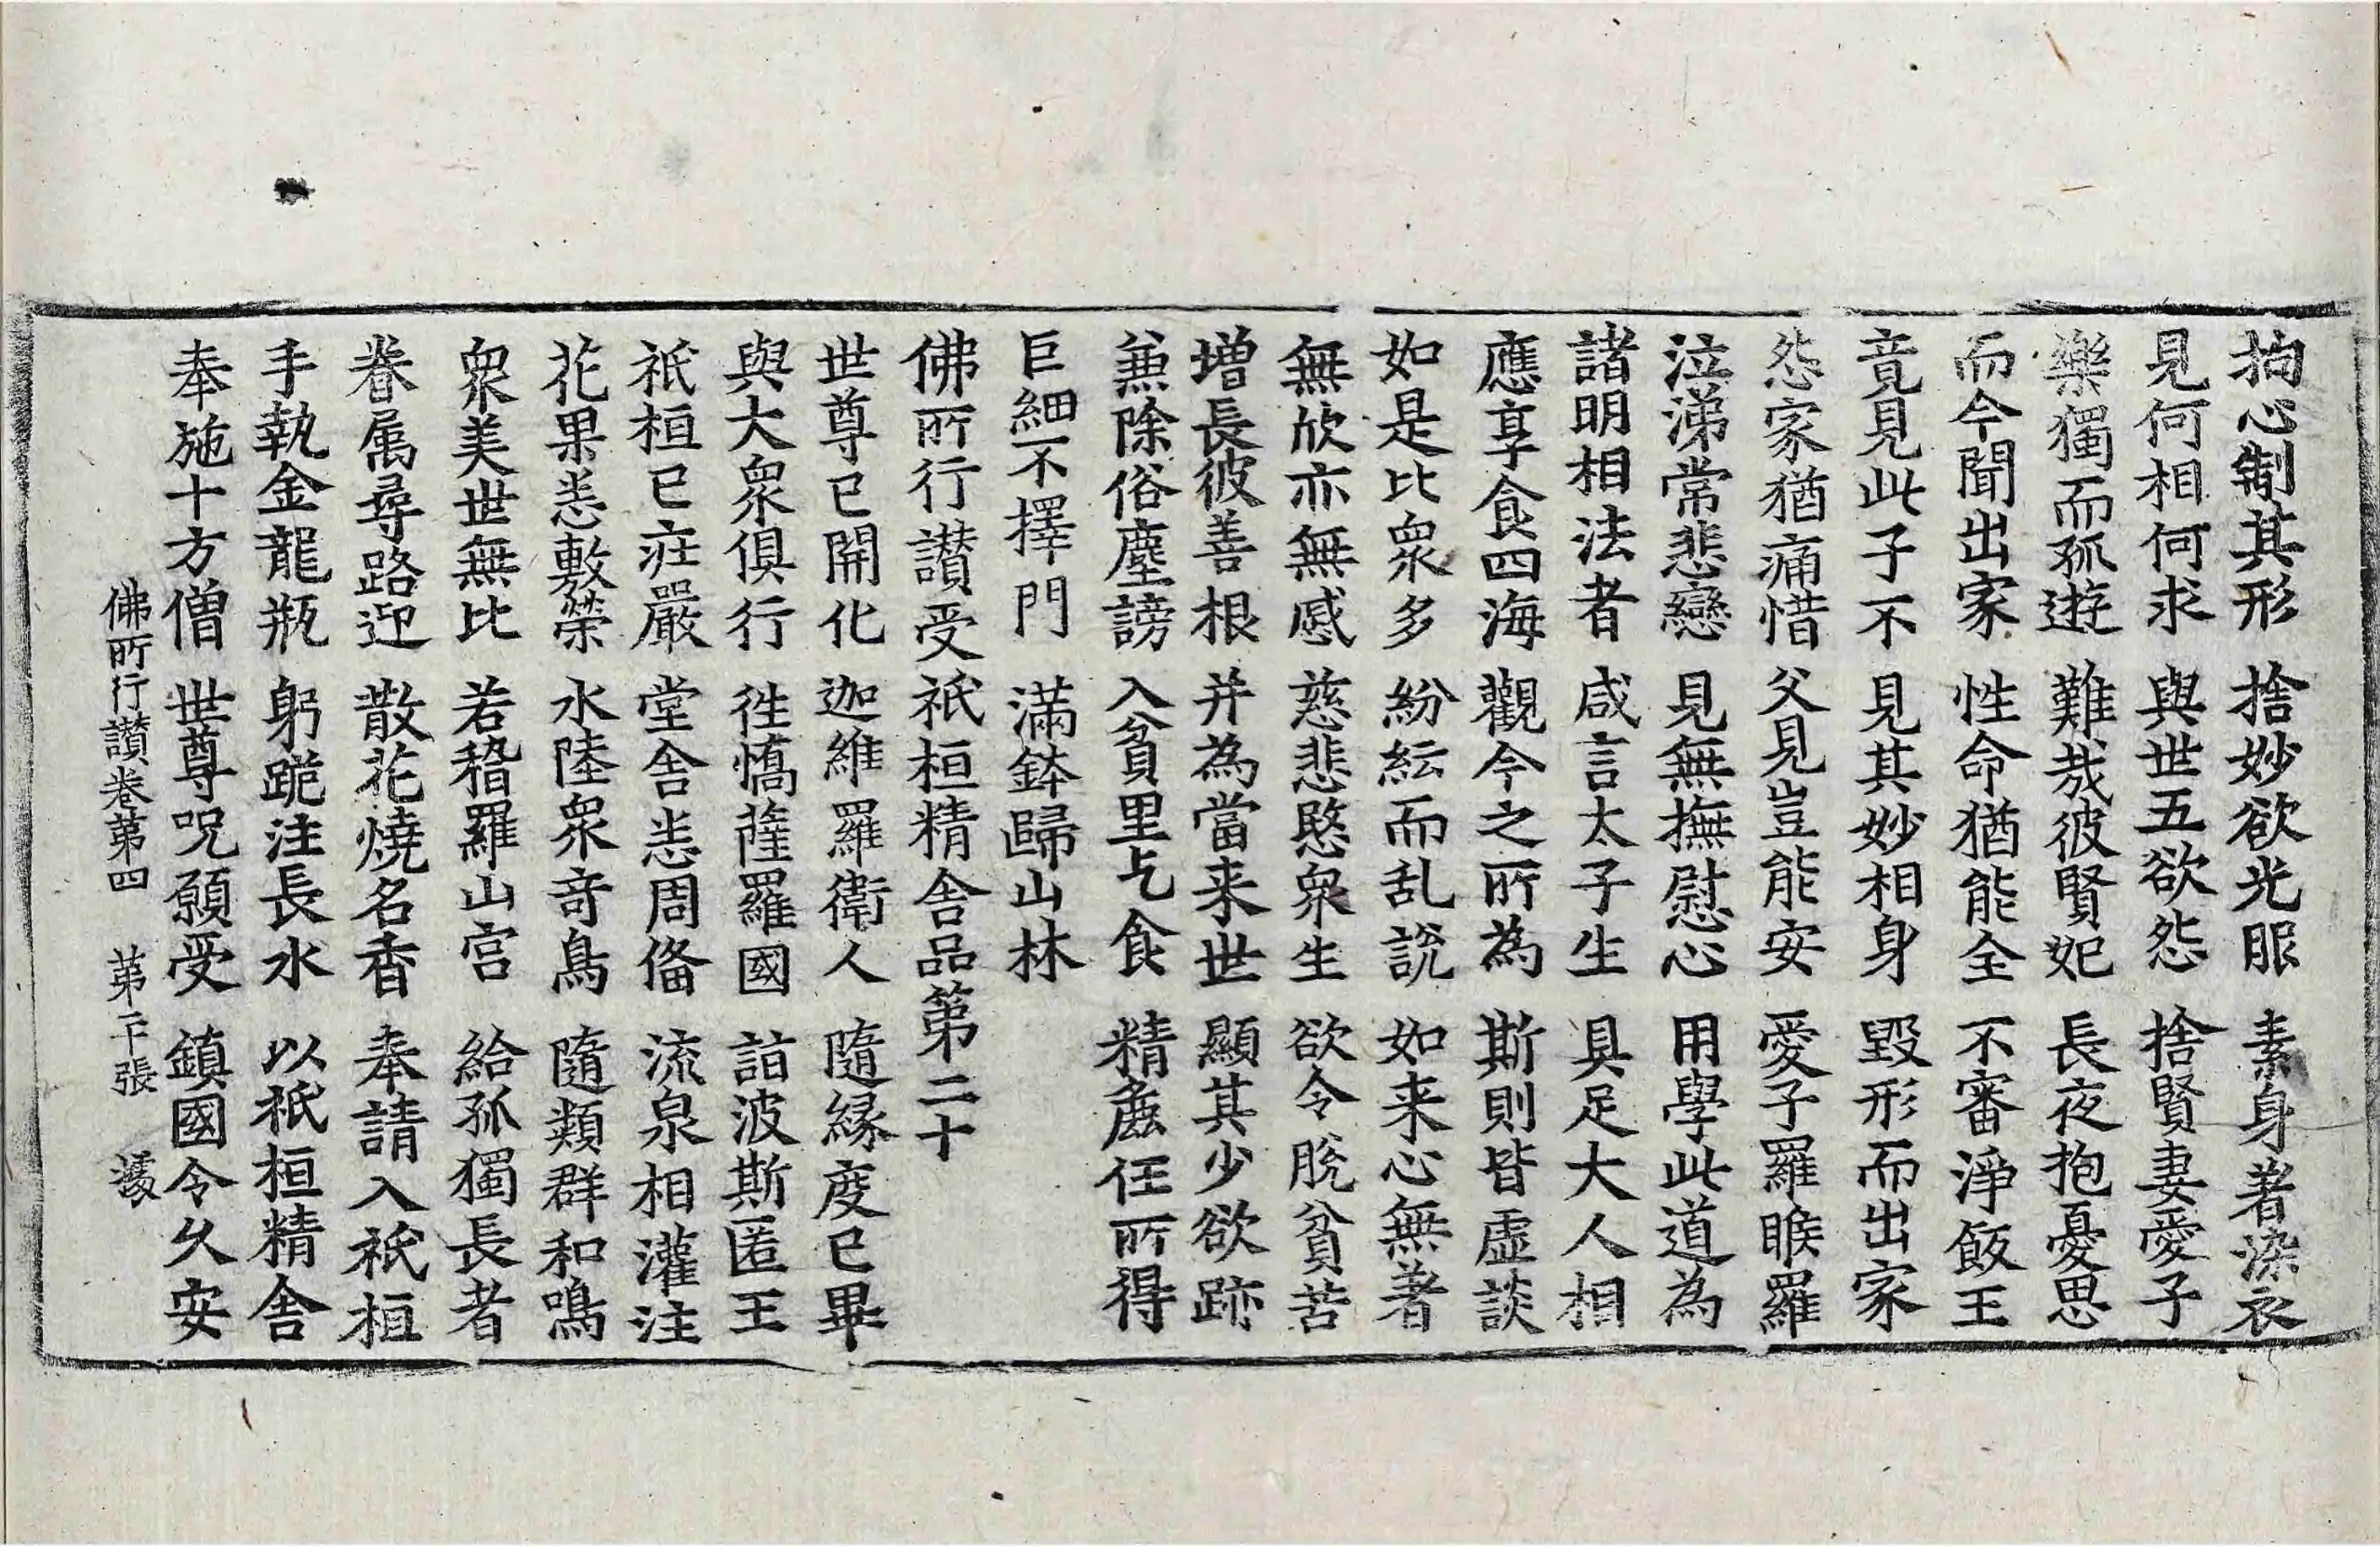 拘心制其形 捨妙欲光服 素身著染衣
見何相何求 與世五欲怨 捨賢妻愛子
樂獨而孤遊 難㢤彼賢妃 長夜抱憂思
而今聞出家 性命猶能全 不審淨飯王
竟見此子不 見其妙相身 毀形而出家
怨家猶痛惜 父見豈能安 愛子羅睺羅
泣涕常悲戀 見無撫慰心 用學此道為
諸明相法者 咸言太子生 具足大人相
應享食四海 觀今之所為 斯則皆虛談
如是比衆多 紛紜而乱說 如来心無著
無欣亦無慼 慈悲愍衆生 欲令脫貧苦
增長彼善根 并為當来世 顯其少欲跡
兼除俗塵謗 入貧里乞食 精麁任所得
巨細不擇門 滿鉢歸山林
佛所行讃受祇桓精舍品第二十
世尊已開化 迦維羅衛人 隨緣度已畢
與大衆俱行 徃憍薩羅國 詣波斯匿王
祇桓已莊嚴 堂舍悉周俻 流泉相灌注
花果悉敷榮 水陸衆竒鳥 隨類群和鳴
衆美世無比 若稽羅山宫 給孤獨長者
眷属尋路迎 散花燒名香 奉請入祇桓
手執金龍瓶 躬跪注長水 以祇桓精舍
奉施十方僧 世尊呪願受 鎮國令久安
佛所行讃卷第四 第二十張